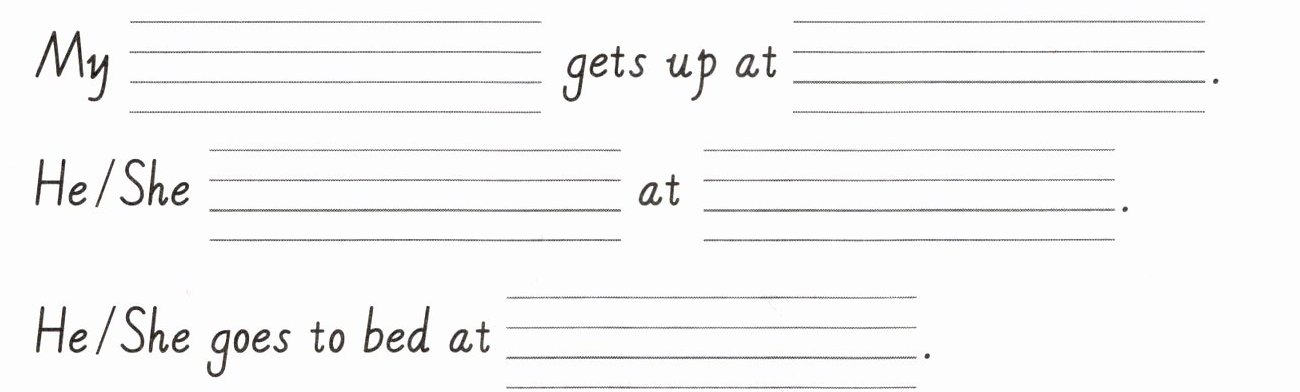 My gets up at .
He/She at .
He/She goes to bed at .